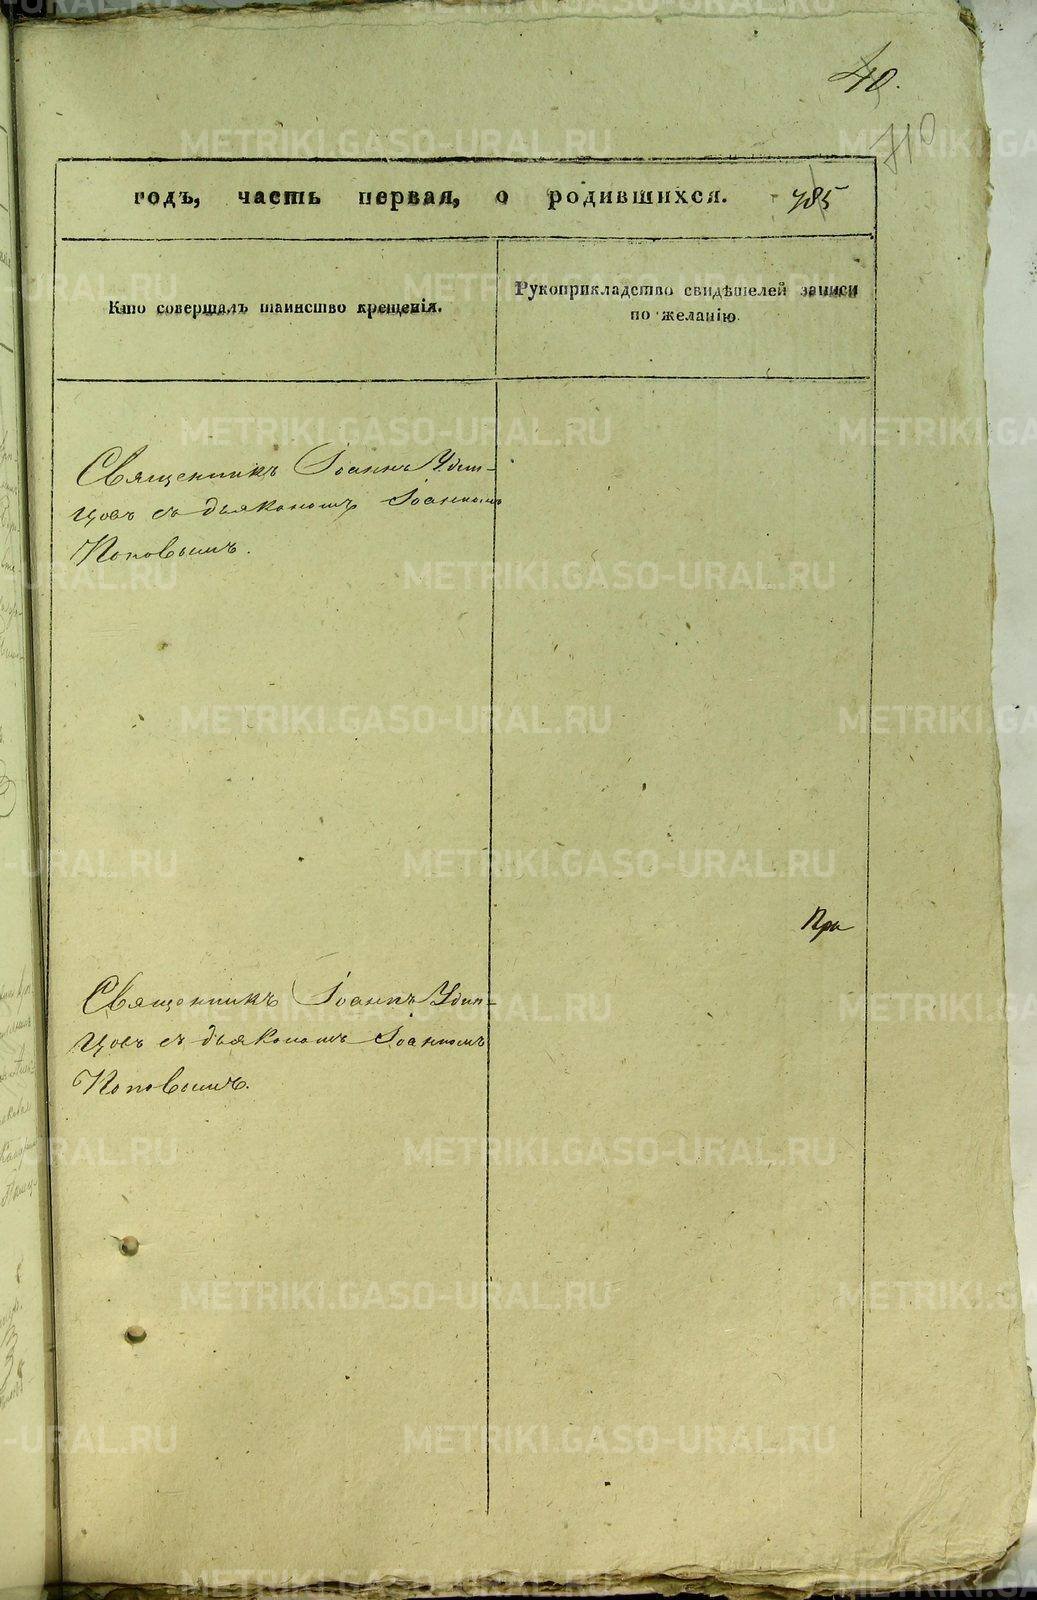 40.
710
годъ, часть первая, о родившихся. 785
Кто совершалъ таинство крещенія.
Рукоприкладство свидѣтелей записи
по желанію
Священникъ Іоаннъ Удин-
цовъ съ дьякономъ Іоанномъ
Поповымъ.
При
Священникъ Іоаннъ Удин-
цовъ съ дьякономъ Іоанномъ
Поповымъ.
METRIKI.GASO-URAL.RU